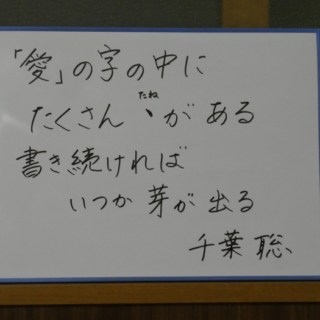 「愛」の字の中に
たくさん丶がある
たね
書き続ければ
いつか芽が出る
千葉聡